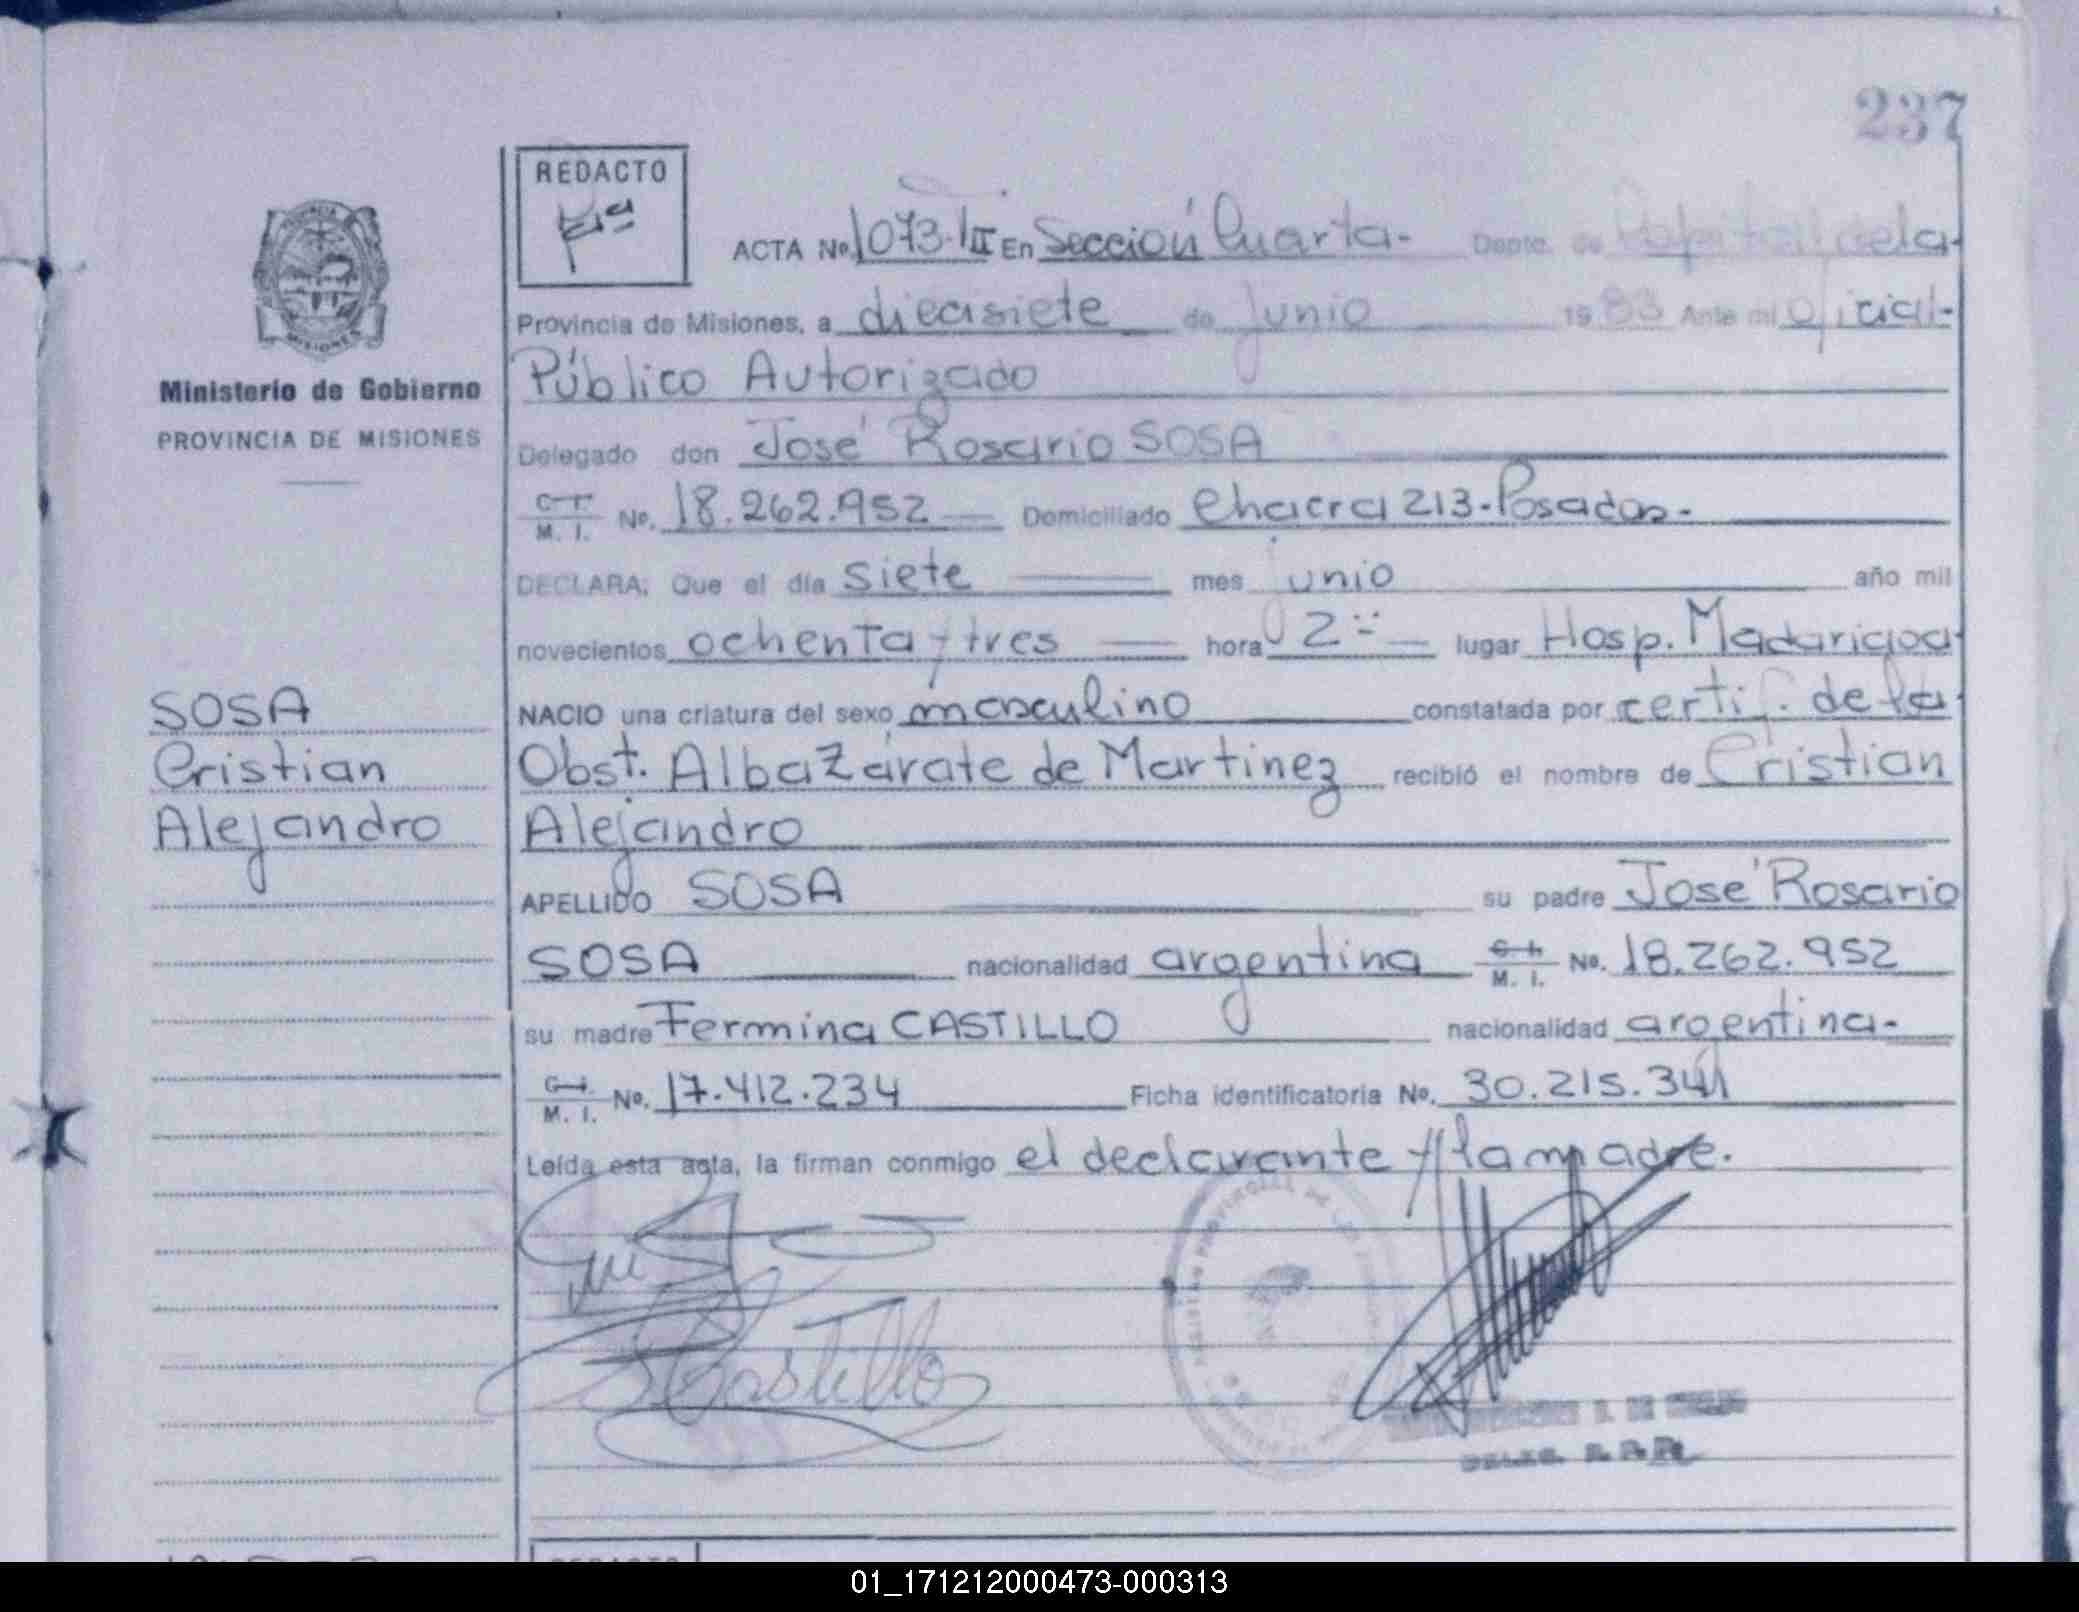 237
REDACTO
ACTA Nº 1073-III En Sección Cuarta- Depto. de Capital de la
Provincia de Misiones, a diecisiete de Junio 1983 Ante mi Oficial-
Público Autorizado
Delegado don José Rosario SOSA
C. I. M. I. No. 18.262.952 Domiciliado Chacra 213-Posadas-
DECLARA: Que el día siete mes junio año mil
novecientos ochenta y tres hora 2 lugar Hosp. Madariaga
NACIO una criatura del sexo masculino constatada por certif. de la
Obst. Alba Zárate de Martinez recibió el nombre de Cristian
Alejandro
APELLIDO SOSA su padre José Rosario
SOSA nacionalidad argentina C. I. M. I. No. 18.262.952
su madre Fermina CASTILLO nacionalidad argentina-
C. I. M. I. No. 17.412.234 Ficha identificatoria No. 30.215.341
Leída esta acta, la firman conmigo el declarante y la madre.
Castillo
MISIONES
Ministerio de Gobierno
PROVINCIA DE MISIONES
SOSA
Cristian
Alejandro
01_171212000473-000313